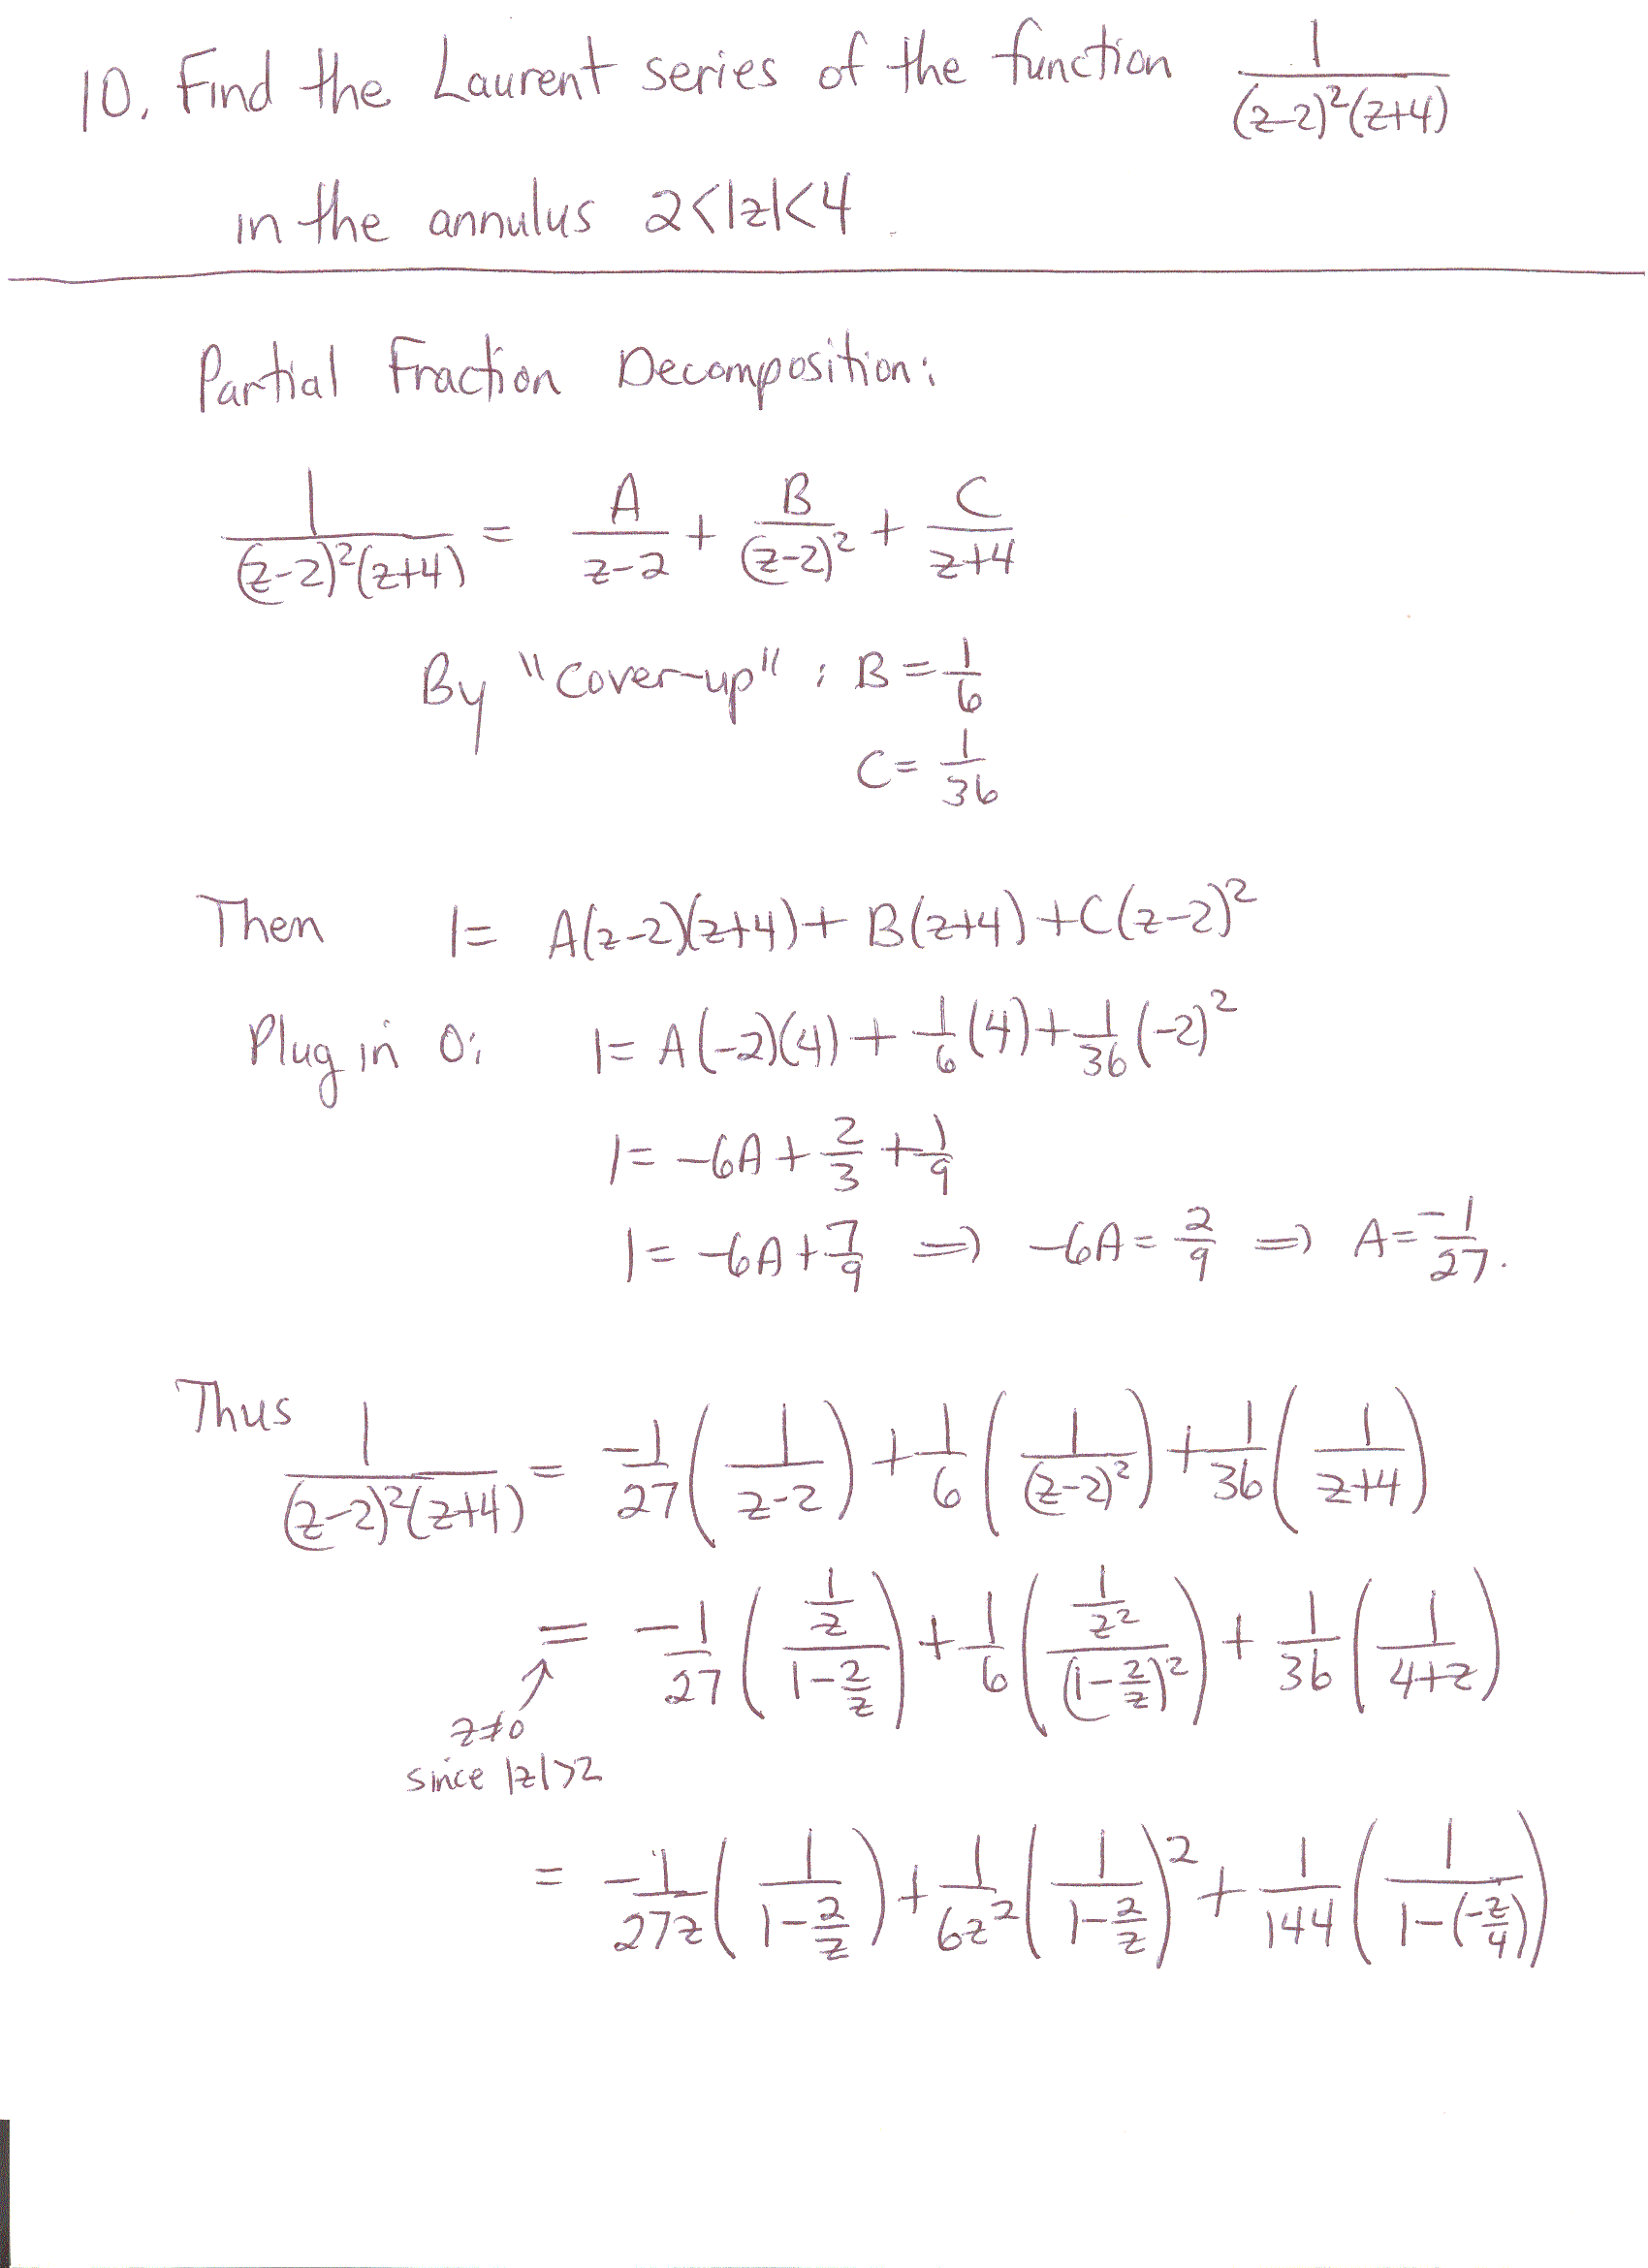 10. Find the Laurent series of the function 1/((z-2)²(z+4))
in the annulus 2<|z|<4.
Partial Fraction Decomposition:
1/((z-2)²(z+4)) = A/(z-2) + B/(z-2)² + C/(z+4)
By "cover-up": B = 1/6
C = 1/36
Then 1 = A(z-2)(z+4) + B(z+4) + C(z-2)²
Plug in 0: 1 = A(-2)(4) + 1/6(4) + 1/36(-2)²
1 = -6A + 2/3 + 1/9
1 = -6A + 7/9 ⇒ -6A = 2/9 ⇒ A = -1/27.
Thus
1/((z-2)²(z+4)) = -1/27(1/(z-2)) + 1/6(1/(z-2)²) + 1/36(1/(z+4))
= -1/27((1/z)/(1-2/z)) + 1/6((1/z²)/(1-2/z)²) + 1/36(1/(4+z))
z≠0
since |z|>2
= -1/(27z)(1/(1-2/z)) + 1/(6z²)(1/(1-2/z))² + 1/144(1/(1-(-z/4)))